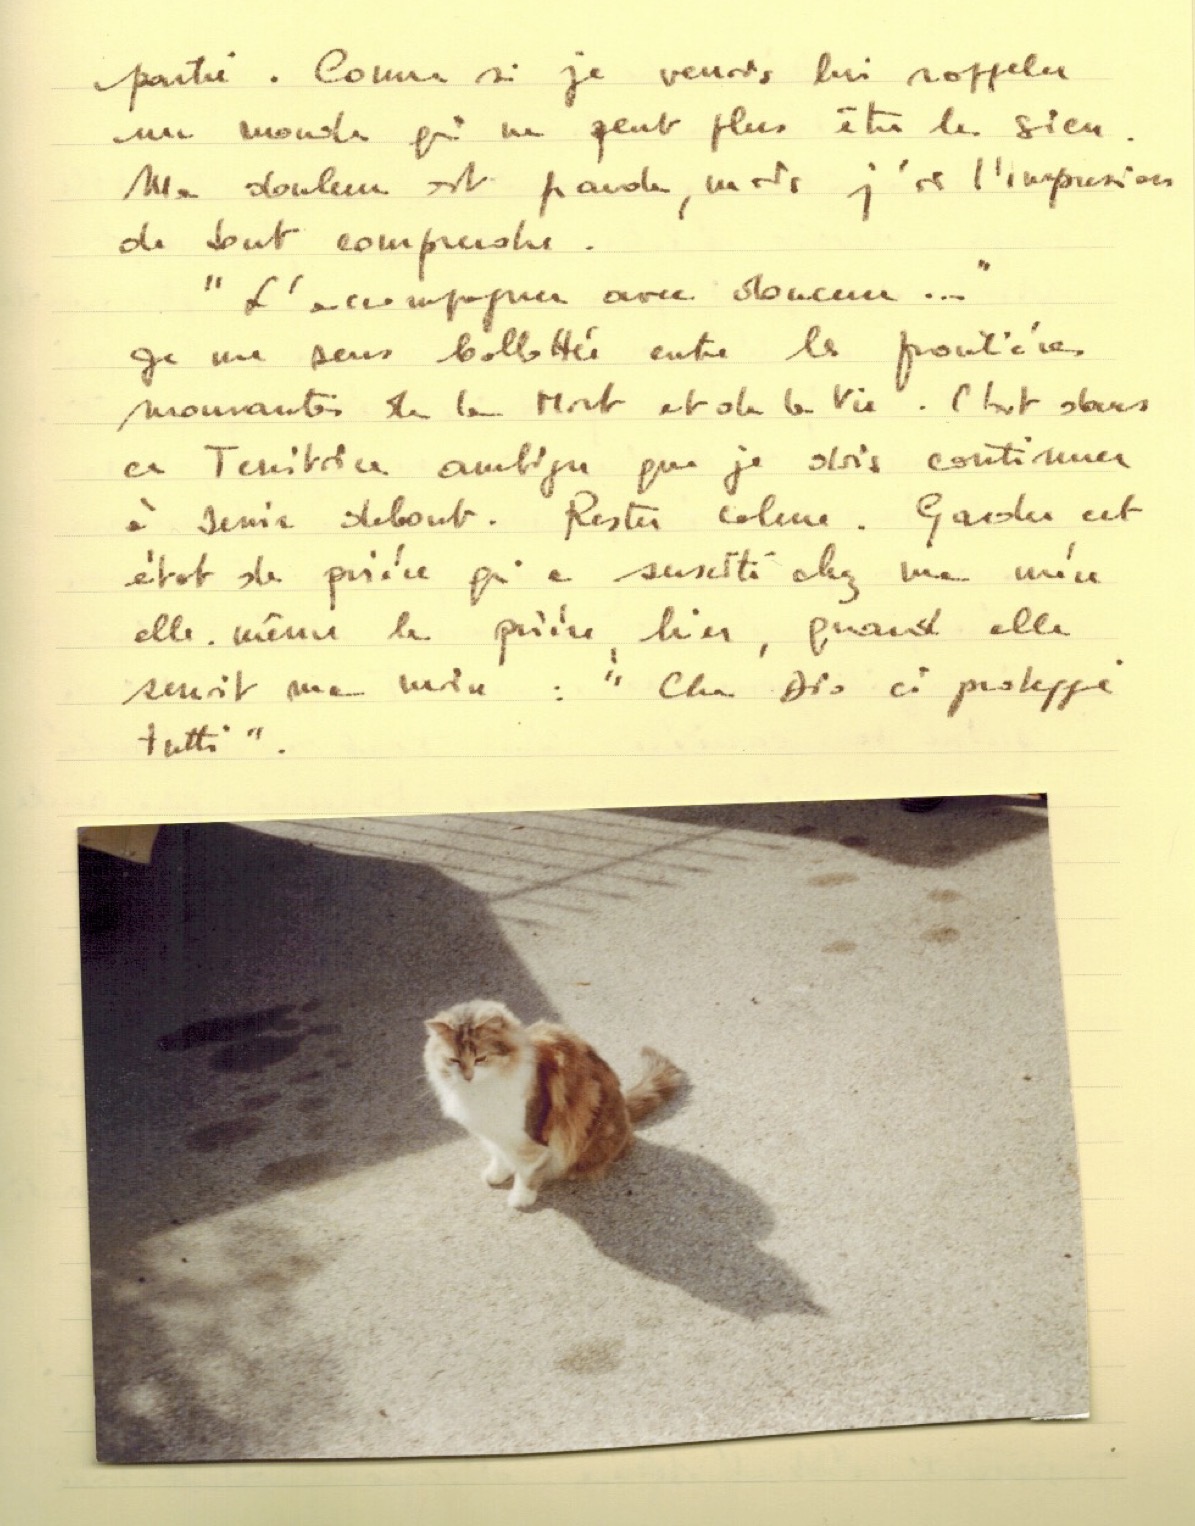 partie. Comme si je venais lui rappeler
un monde qui ne peut plus être le sien.
Ma douleur est grande, mais j'ai l'impression
de tout comprendre.
"L'accompagner avec douceur..."
Je me sens ballottée entre les frontières
mouvantes de la Mort et de la Vie. C'est dans
ce Territoire ambigu que je dois continuer
à tenir debout. Rester calme. Garder cet
état de prière qui a suscité chez ma mère
elle-même la prière, hier, quand elle
serrait ma main : "Che Dio ci protegga
tutti".